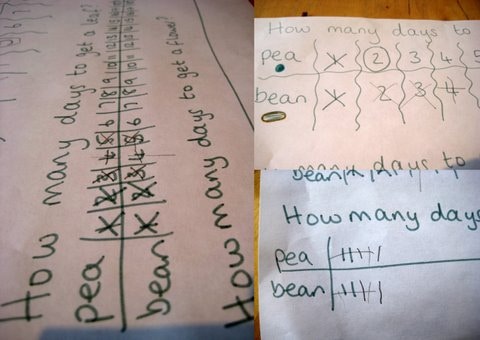 How many days to get a leaf?
pea X 2 3 4 5 6 7 8 9 10 11 12 13
bean X 2 3 4 5 6 7 8 9 10 11 12 13
How many days to get a flower?
How many days to
pea X 2 3 4 5
bean X 2 3 4
bean
days to
How many days
pea
bean